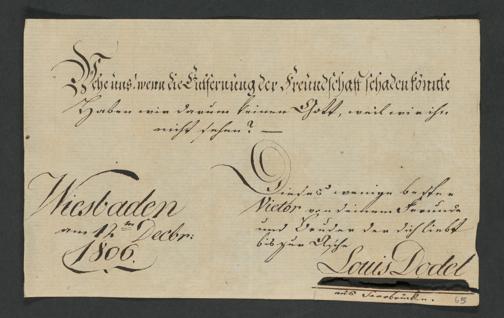 Wehe uns! wenn die Entfernung der Freundschaft schaden könnte
Haben wir darum keinen Gott, weil wir ihn
nicht sehen? —
Wiesbaden
am 12ten Decbr:
1806.
Dieses wenige bester
Victor von deinem Freunde
und Bruder der dich liebt
bis zur Asche
Louis Dodel
aus Saarbrücken.
65